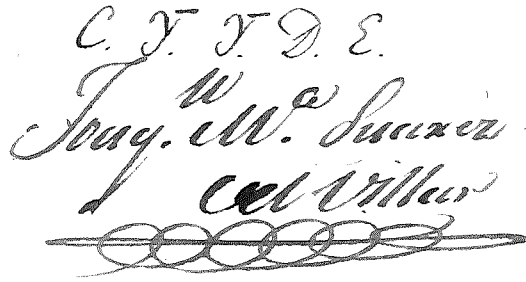 C. T. T. D. E.
Joaq. n M.a Suarez
del Villar